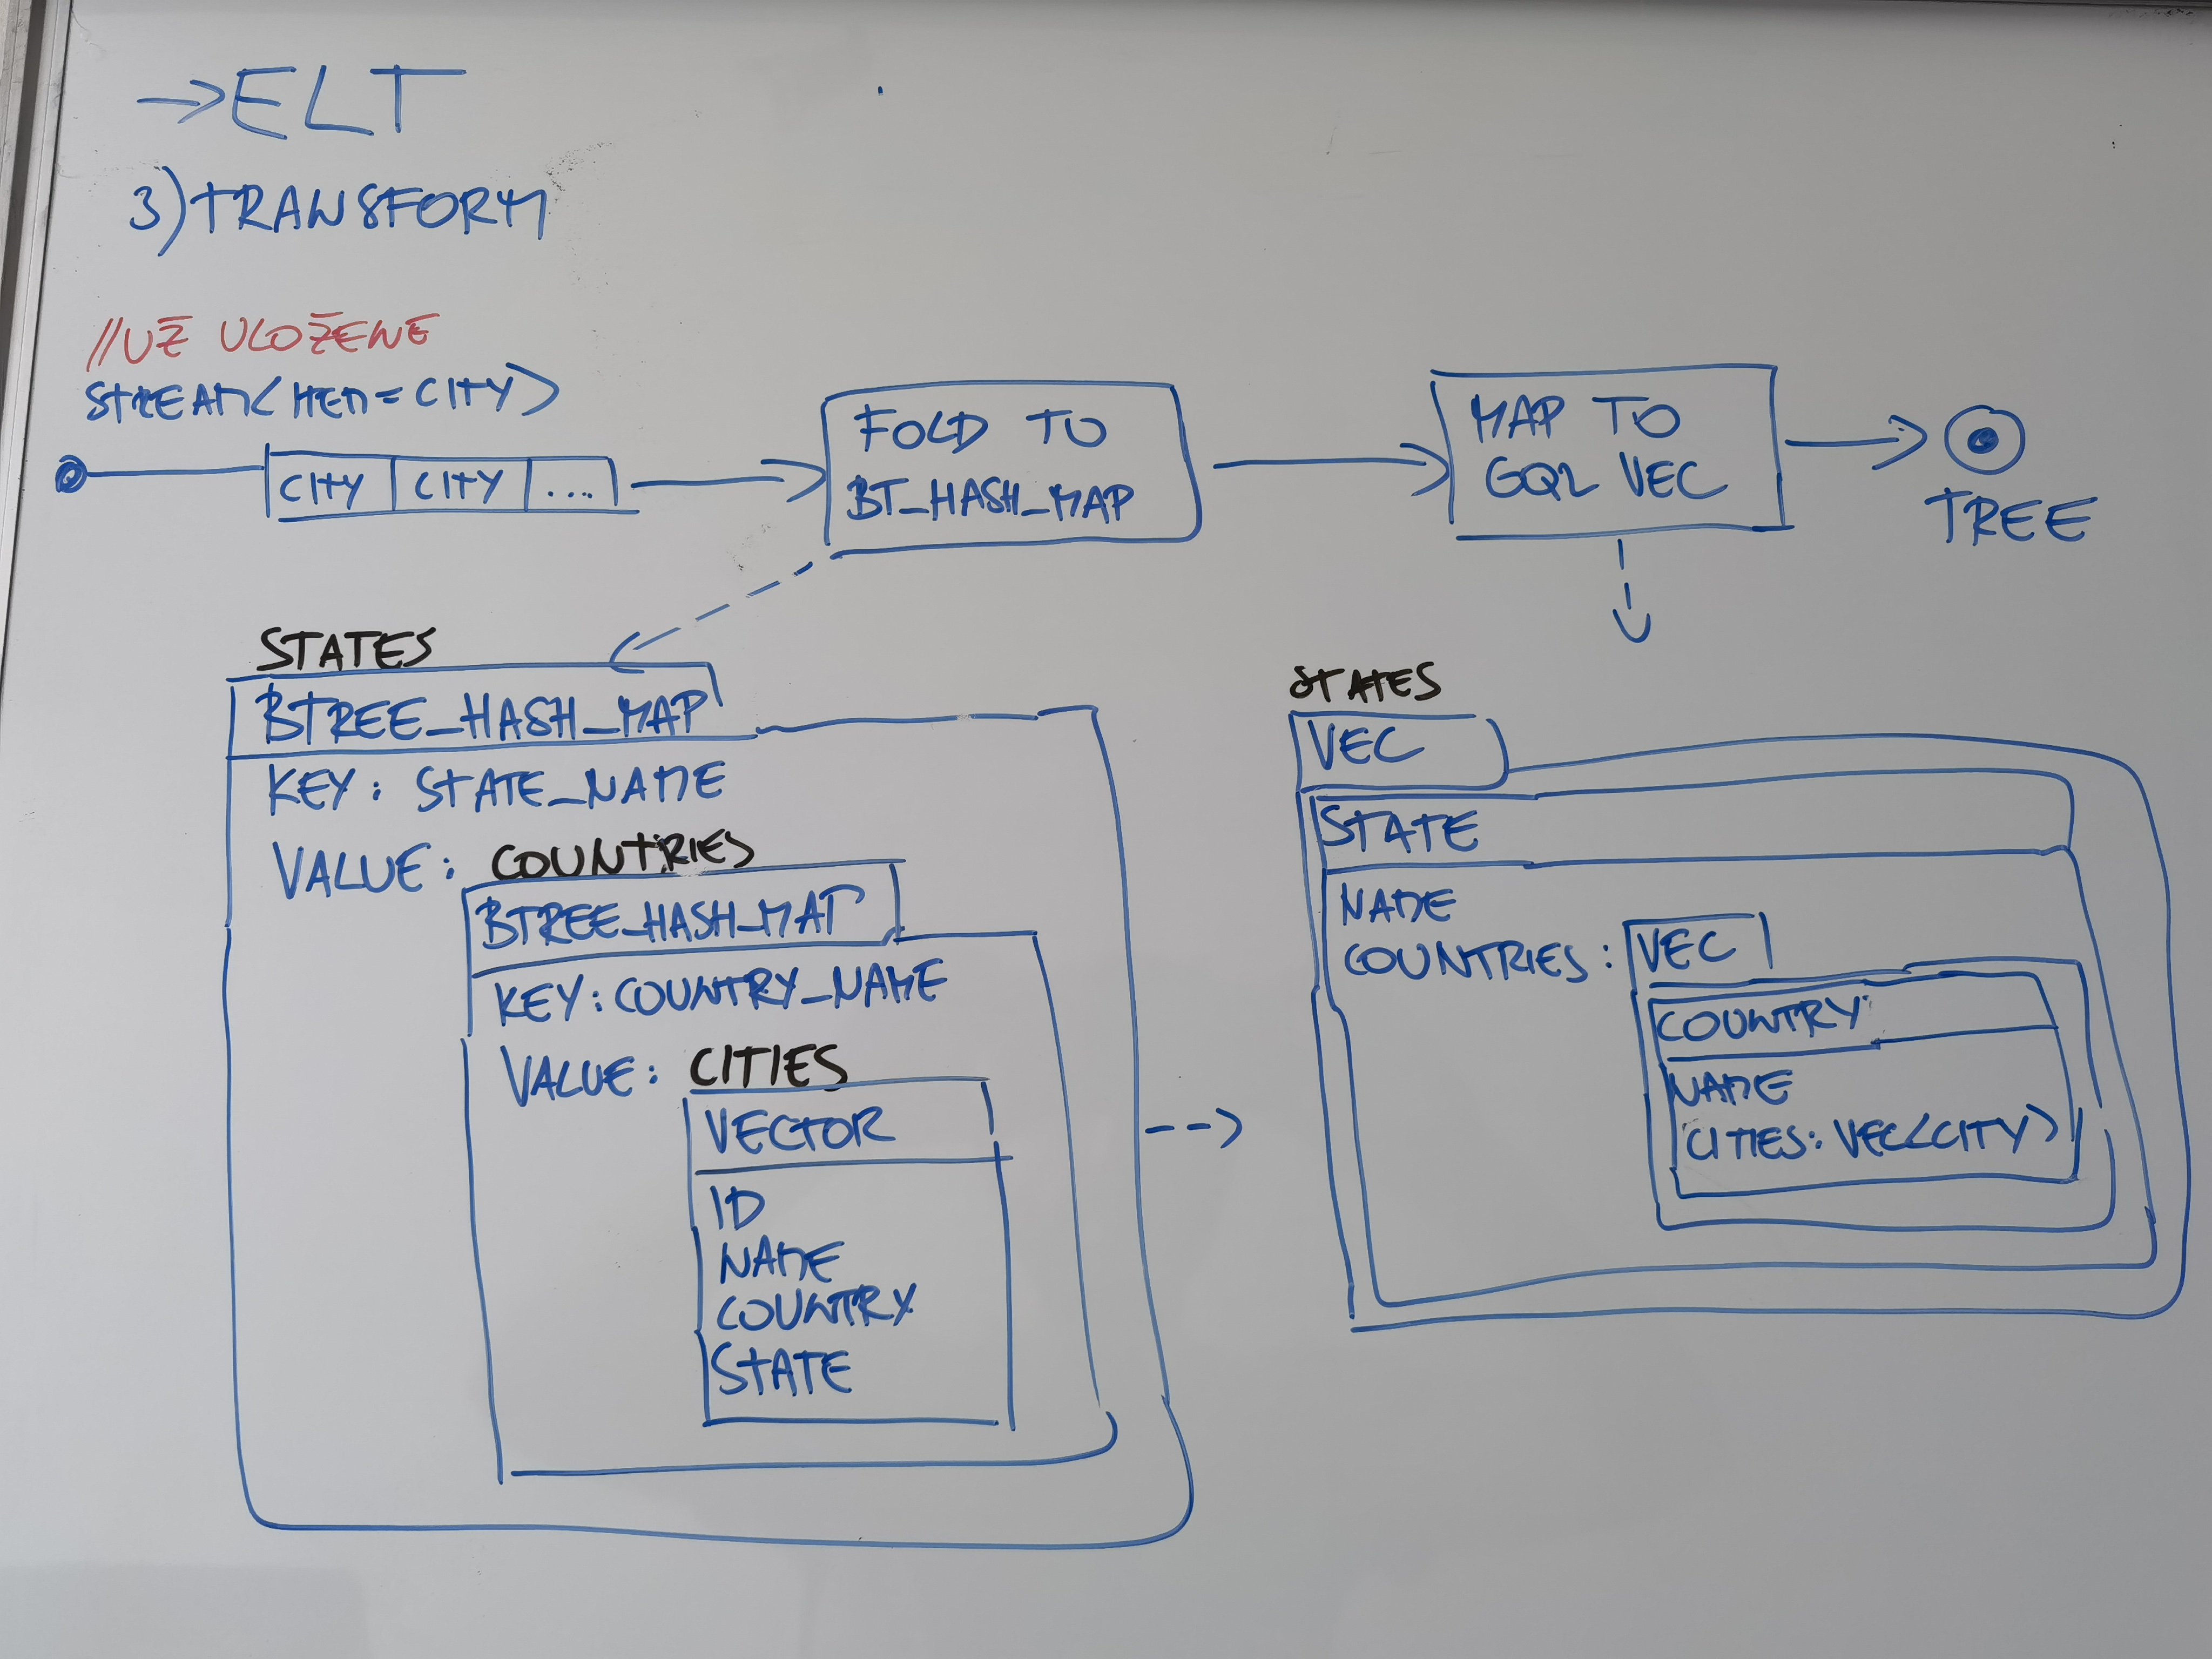 →ELT
3)TRANSFORM
//UŽ ULOŽENÉ
STREAM<ITEM=CITY>
CITY CITY ...
FOLD TO
BT_HASH_MAP
MAP TO
GQL VEC
TREE
STATES
BTREE_HASH_MAP
KEY: STATE_NAME
VALUE: COUNTRIES
BTREE_HASH_MAP
KEY: COUNTRY_NAME
VALUE: CITIES
VECTOR
ID
NAME
COUNTRY
STATE
STATES
VEC
STATE
NAME
COUNTRIES: VEC
COUNTRY
NAME
CITIES: VEC<CITY>